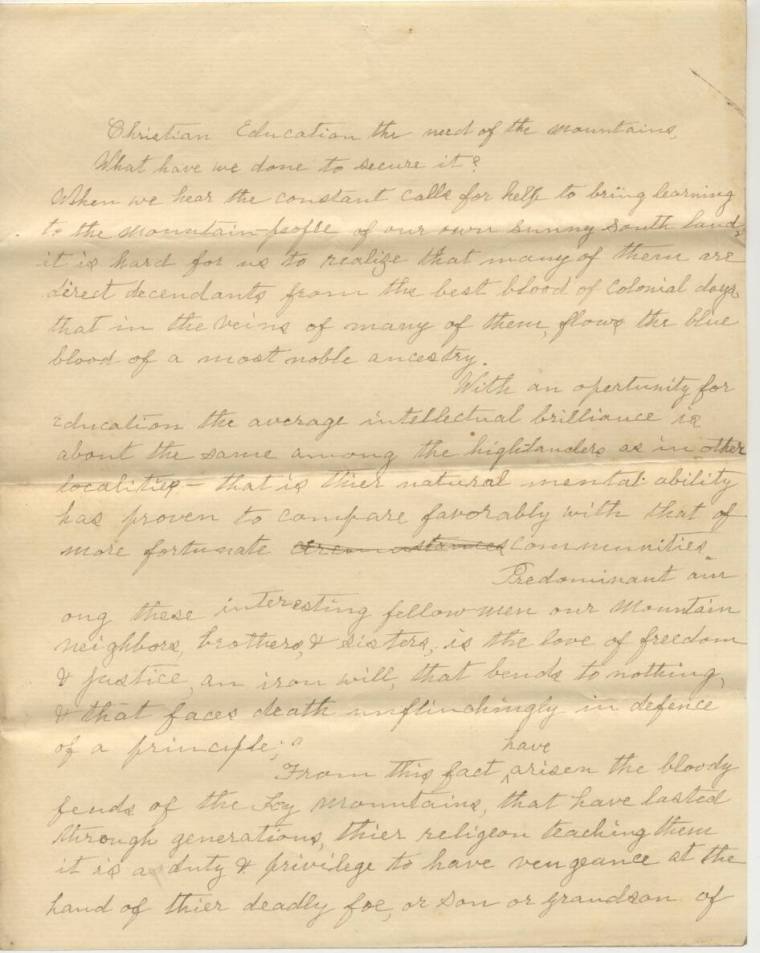 Christian Education the need of the mountains,
What have we done to secure it?
When we hear the constant calls for help to bring learning
to the mountain-people of our own sunny south land,
it is hard for us to realize that many of them are
direct decendants from the best blood of Colonial days,
that in the veins of many of them, flows the blue
blood of a most noble ancestry.
With an opertunity for
Education the average intellectual brilliance is
about the same among the "highlanders as in other
localities - that is thier natural mental ability
has proven to compare favorably with that of
more fortunate circumstances communities.
Predominant am
ong these interesting fellow-men our mountain
neighbors, brothers, & sisters, is the love of freedom
& justice, an iron will, that bends to nothing,
& that faces death unflinchingly in defence
of a principle;"
have
From this fact, arisen the bloody
feuds of the Ky mountains, that have lasted
through generations, thier religeon teaching them
it is a duty & privilege to have vengeance at the
hand of thier deadly foe, or son or grandson of